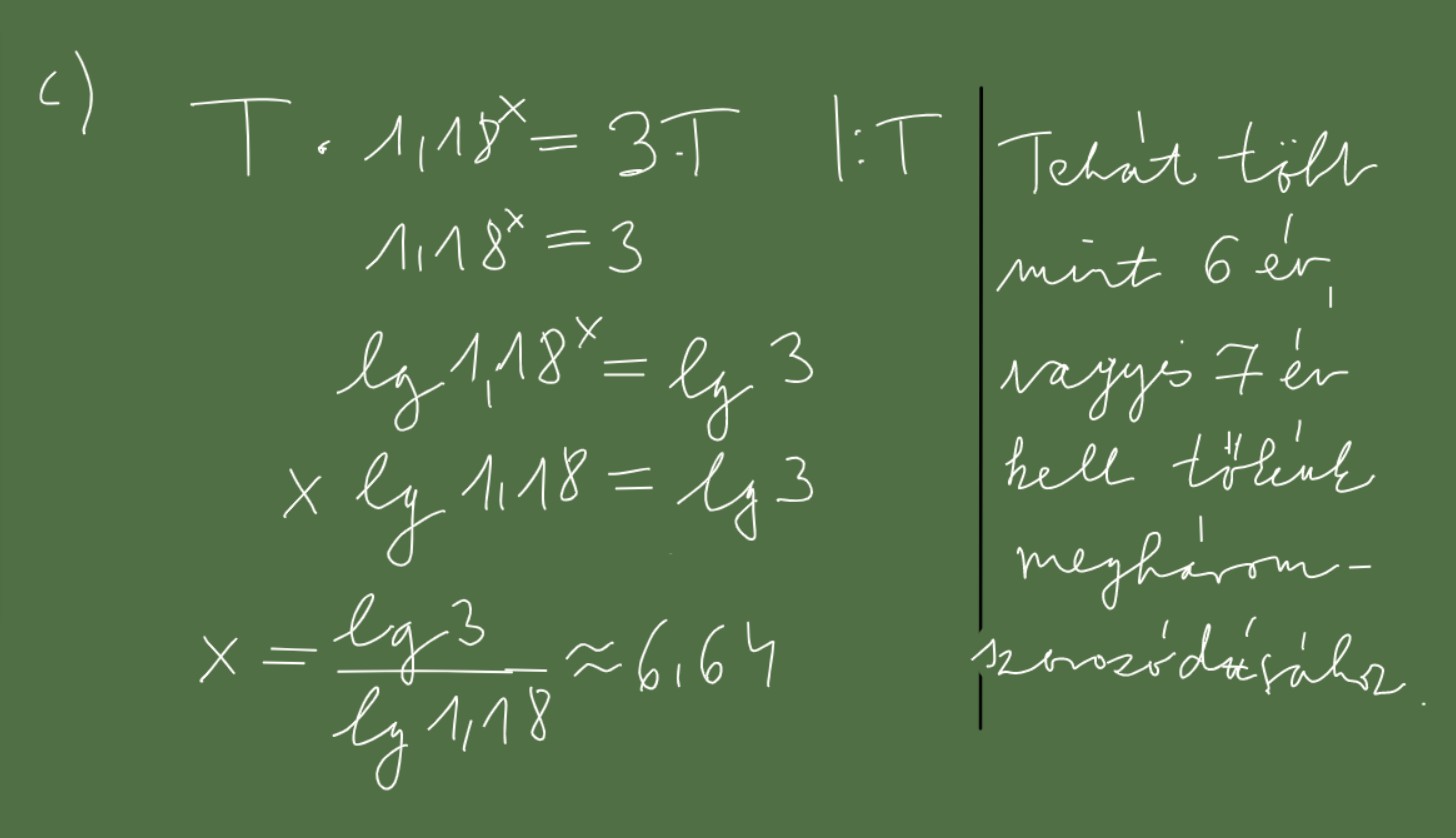 c)
T · 1,18^x = 3·T |:T
1,18^x = 3
lg 1,18^x = lg 3
x lg 1,18 = lg 3
x = lg 3 / lg 1,18 ≈ 6,64
Tehát több
mint 6 év,
vagyis 7 év
kell tőkénk
meghárom-
szorozódásához.